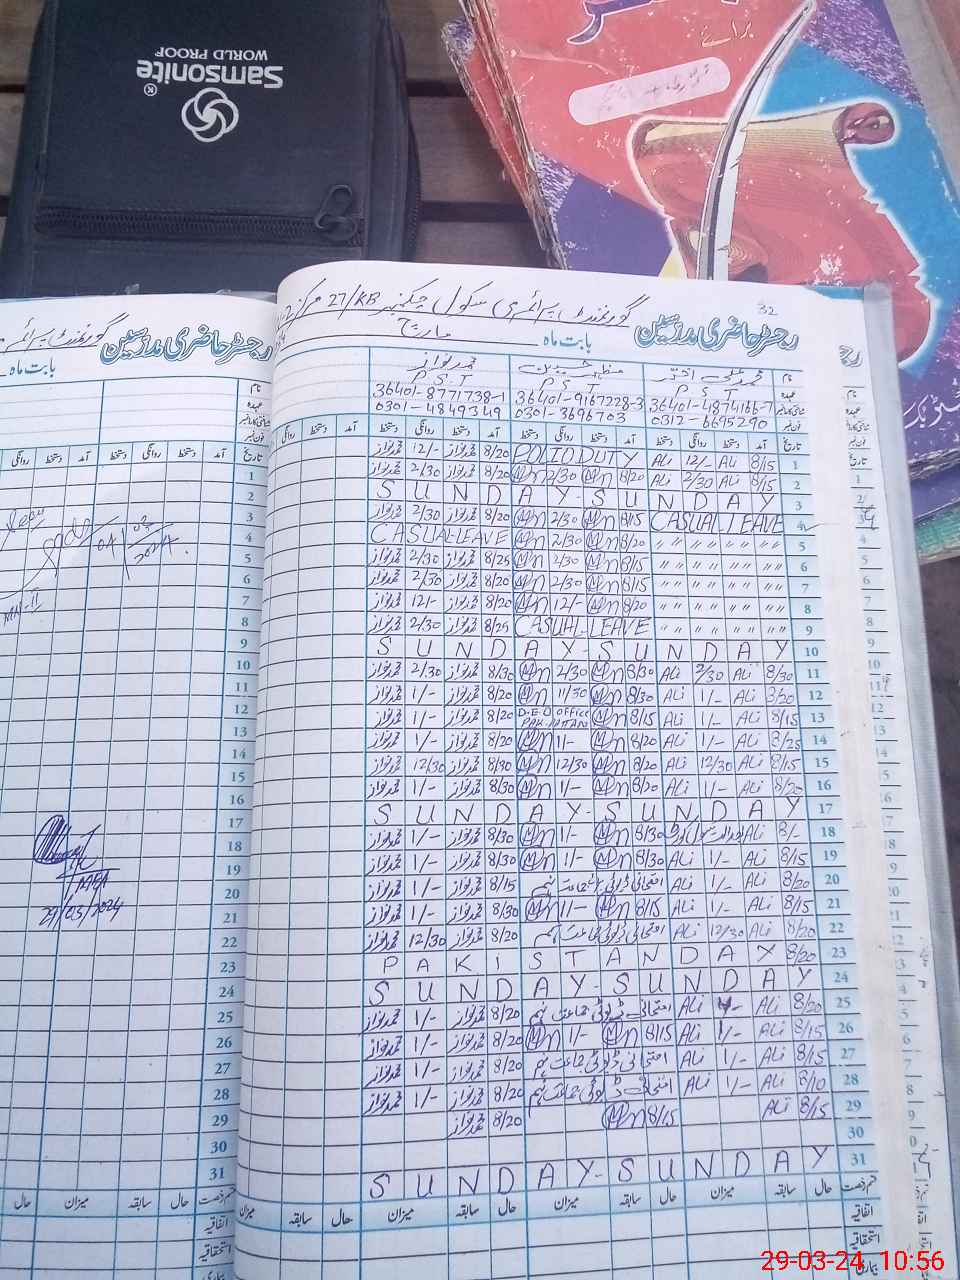 Samsonite
WORLD PROOF
برائے
32
گورنمنٹ پرائمری سکول چکنمبر 27/KB مرکز
رجسٹر حاضری مدرسین
بابت ماہ مارچ
نام محمد علی اختر مظہر حسین محمد نواز
عہدہ P S T P S T P S T
36401-4874166-7 36401-9167228-3 36401-8771738-1
0312-6695290 0301-3696703 0301-4849349
تاریخ آمد دستخط روانگی دستخط آمد دستخط روانگی دستخط آمد دستخط روانگی دستخط
1 8/15 Ali 12/- Ali POLIO DUTY 8/20 محمد نواز 12/- محمد نواز
2 8/15 Ali 2/30 Ali 8/20 Mn 2/30 Mn 8/20 محمد نواز 2/30 محمد نواز
3 SUNDAY-SUNDAY
4 CASUAL LEAVE 8/15 Mn 2/30 Mn 8/20 محمد نواز 2/30 محمد نواز
5 " " " " " " 8/20 Mn 2/30 Mn CASUAL LEAVE
6 " " " " " " 8/15 Mn 2/30 Mn 8/25 محمد نواز 2/30 محمد نواز
7 " " " " " " 8/15 Mn 2/30 Mn 8/20 محمد نواز 2/30 محمد نواز
8 " " " " " " 8/20 Mn 12/- Mn 8/20 محمد نواز 12/- محمد نواز
9 " " " " " " CASUAL-LEAVE 8/25 محمد نواز 2/30 محمد نواز
10 SUNDAY-SUNDAY
11 8/30 Ali 2/30 Ali 8/30 Mn 2/30 Mn 8/30 محمد نواز 2/30 محمد نواز
12 8/20 Ali 1/- Ali 8/30 Mn 11/30 Mn 8/20 محمد نواز 1/- محمد نواز
13 8/15 Ali 1/- Ali 8/15 Mn D.E.O OFFICE PAKPATTAN 8/20 محمد نواز 1/- محمد نواز
14 8/25 Ali 1/- Ali 8/20 Mn 1/- Mn 8/20 محمد نواز 1/- محمد نواز
15 8/15 Ali 12/30 Ali 8/20 Mn 12/30 Mn 8/30 محمد نواز 12/30 محمد نواز
16 8/20 Ali 1/- Ali 8/20 Mn 1/- Mn 8/30 محمد نواز 1/- محمد نواز
17 SUNDAY-SUNDAY
18 8/- Ali 8/30 Mn 1/- Mn 8/30 محمد نواز 1/- محمد نواز
19 8/15 Ali 1/- Ali 8/30 Mn 1/- Mn 8/30 محمد نواز 1/- محمد نواز
20 8/20 Ali 1/- Ali امتحانی ڈیوٹی جماعت نہم 8/15 محمد نواز 1/- محمد نواز
21 8/15 Ali 1/- Ali 8/15 Mn 1/- Mn 8/30 محمد نواز 1/- محمد نواز
22 8/20 Ali 12/30 Ali امتحانی ڈیوٹی جماعت نہم 8/20 محمد نواز 12/30 محمد نواز
23 8/20 PAKISTAN DAY
24 SUNDAY-SUNDAY
25 8/20 Ali Ali امتحانی ڈیوٹی جماعت نہم 8/20 محمد نواز 1/- محمد نواز
26 8/15 Ali 1/- Ali 8/15 Mn 1/- Mn 8/20 محمد نواز 1/- محمد نواز
27 8/15 Ali 1/- Ali امتحانی ڈیوٹی جماعت نہم 8/20 محمد نواز 1/- محمد نواز
28 8/10 Ali 1/- Ali امتحانی ڈیوٹی جماعت نہم 8/20 محمد نواز 1/- محمد نواز
29 8/15 Ali 8/15 Mn 8/20 محمد نواز
30
31 SUNDAY-SUNDAY
ختم رخصت حال سابقہ میزان حال سابقہ میزان حال سابقہ میزان
اتفاقیہ
استحقاقیہ
بیماری
گورنمنٹ پرائمر
رجسٹر حاضری مدرسین
بابت ماہ
نام
عہدہ
تاریخ آمد دستخط روانگی دستخط آمد دستخط روانگی
1
2
3
4
5
6
7
8
9
10
11
12
13
14
15
16
17
18
19
20
21
22
23
24
25
26
27
28
29
30
31
04/03/2024
MEA
29/03/2024
ختم رخصت حال سابقہ میزان حال
اتفاقیہ
استحقاقیہ
بیماری
29-03-24 10:56